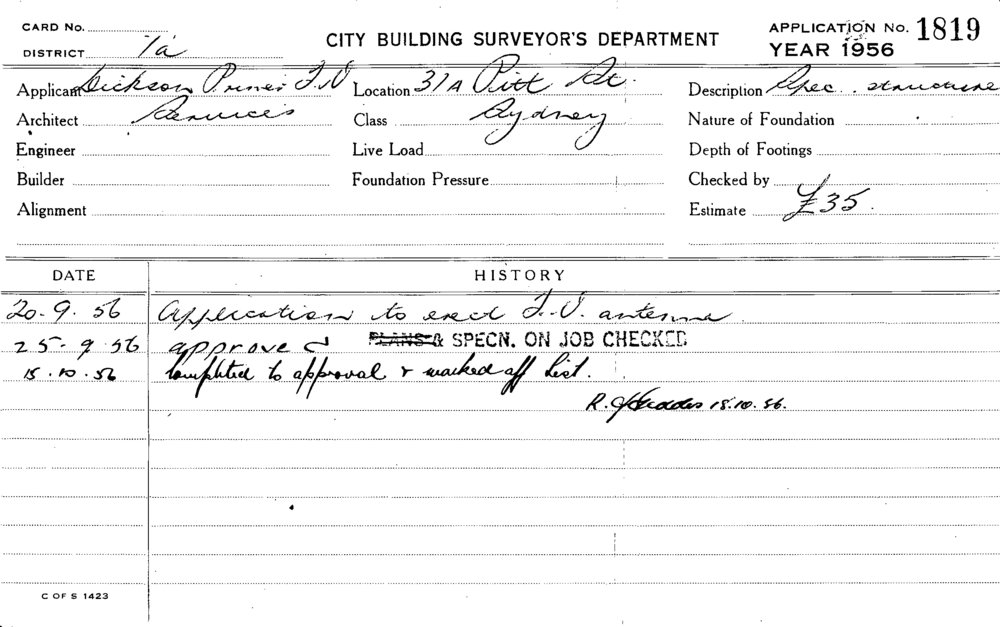 CARD No.
DISTRICT 7a
CITY BUILDING SURVEYOR'S DEPARTMENT
APPLICATION No. 1819
YEAR 1956
Applicant Dickson Primer T.V Location 31A Pitt St. Description Spec. structure
Architect Services Class Sydney Nature of Foundation
Engineer Live Load Depth of Footings
Builder Foundation Pressure Checked by
Alignment Estimate £35.
DATE HISTORY
20.9.56 Application to erect T.V. antenna
25-9 56 approved PLANS & SPECN. ON JOB CHECKED
15.10.56 Completed to approval & marked off List.
R. 15.10.56.
C OF S 1423